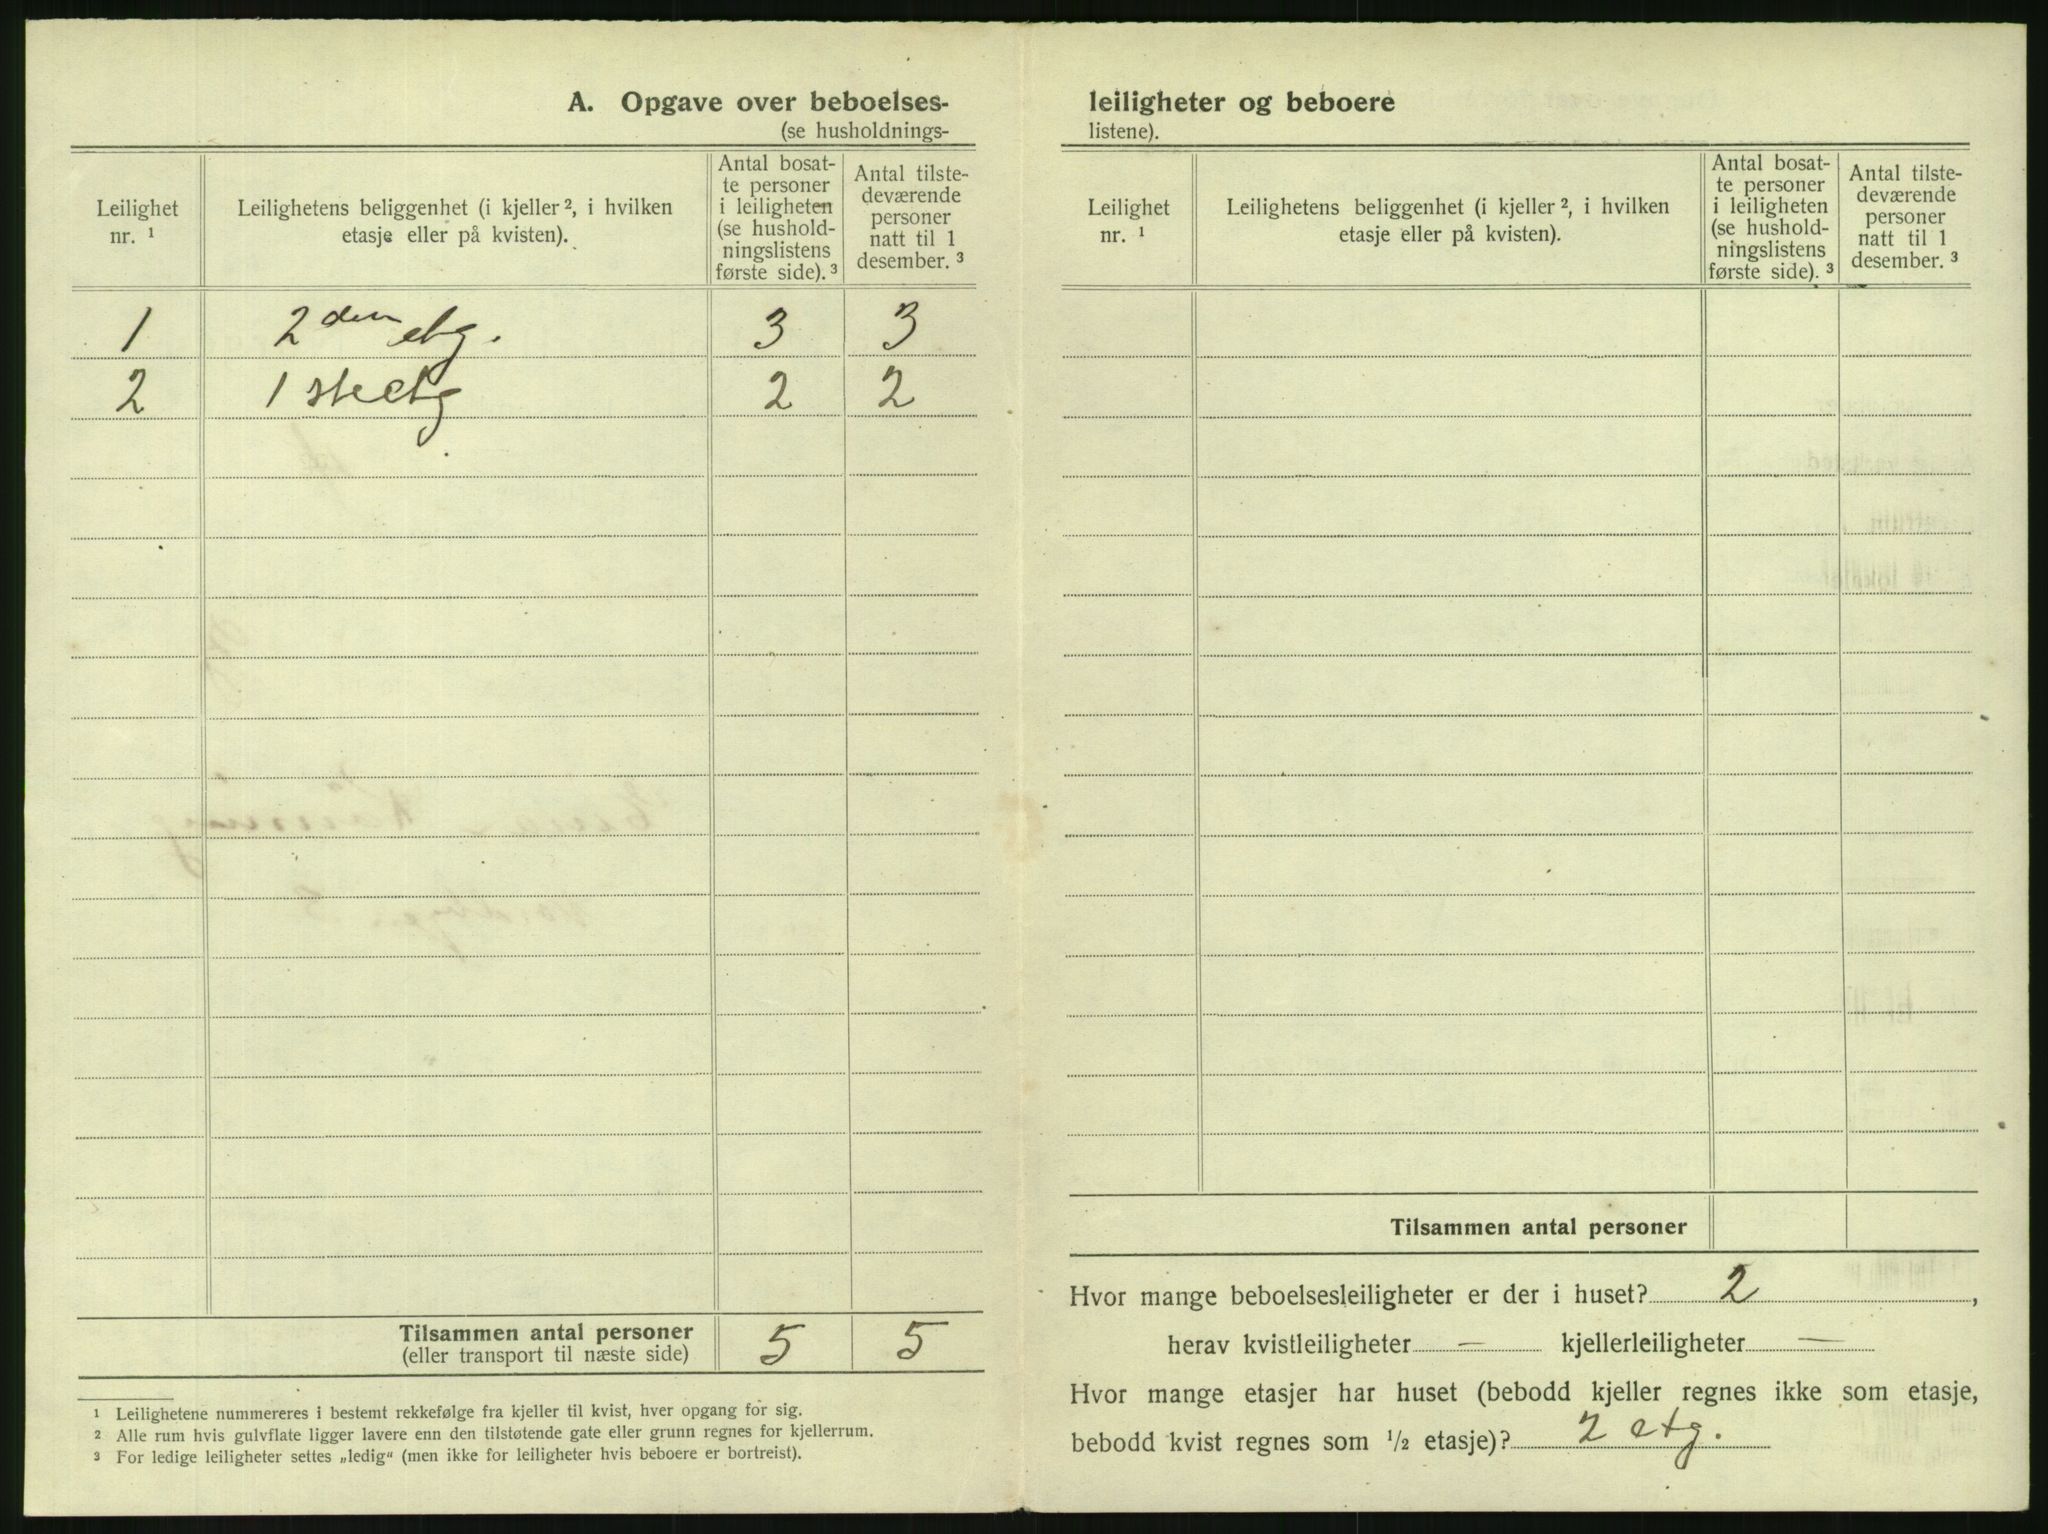 A. Opgave over beboelses-
(se husholdnings-
Leilighet nr. ¹
Leilighetens beliggenhet (i kjeller ², i hvilken etasje eller på kvisten).
Antal bosat-te personer i leiligheten (se hushold-ningslistens første side). ³
Antal tilste-deværende personer natt til 1 desember. ³
1 2den etg. 3 3
2 1 ste etg 2 2
Tilsammen antal personer 5 5
(eller transport til næste side)
¹ Leilighetene nummereres i bestemt rekkefølge fra kjeller til kvist, hver opgang for sig.
² Alle rum hvis gulvflate ligger lavere enn den tilstøtende gate eller grunn regnes for kjellerrum.
³ For ledige leiligheter settes „ledig“ (men ikke for leiligheter hvis beboere er bortreist).
leiligheter og beboere
listene).
Leilighet nr. ¹
Leilighetens beliggenhet (i kjeller ², i hvilken etasje eller på kvisten).
Antal bosat-te personer i leiligheten (se hushold-ningslistens første side). ³
Antal tilste-deværende personer natt til 1 desember. ³
Tilsammen antal personer
Hvor mange beboelsesleiligheter er der i huset? 2,
herav kvistleiligheter — kjellerleiligheter —
Hvor mange etasjer har huset (bebodd kjeller regnes ikke som etasje,
bebodd kvist regnes som ½ etasje)? 2 etg.